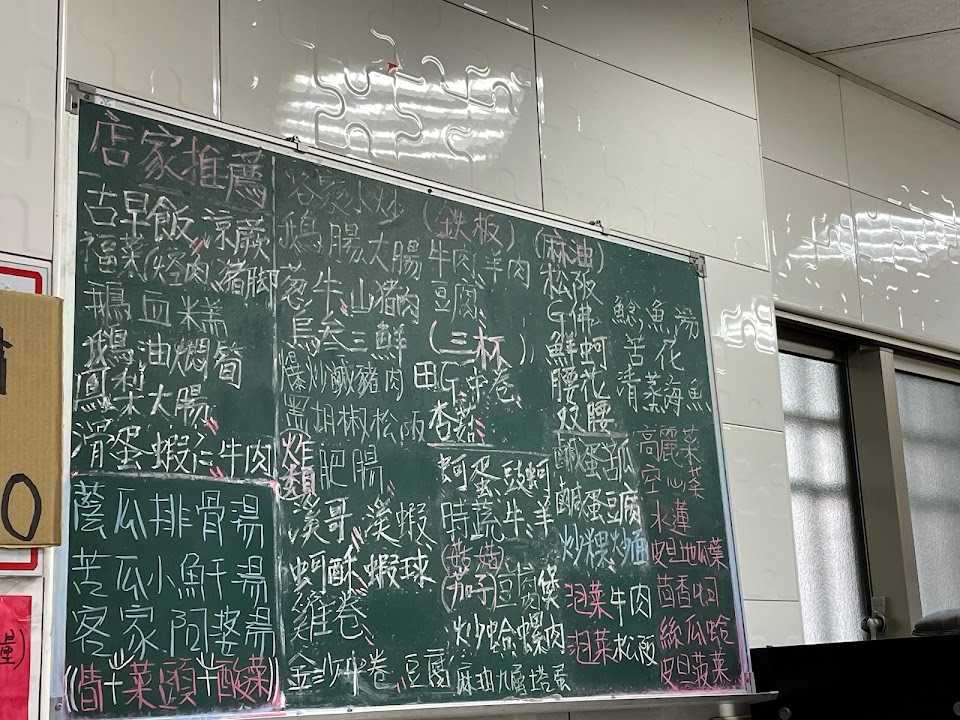 店家推薦
古早飯 涼蕨
福菜(焢肉、豬脚
鵝血糕
鵝油燜筍
鳳梨大腸
滑蛋蝦仁牛肉
蔭瓜排骨湯
苦瓜小魚干湯
客家阿婆湯
((昔十菜頭十酸菜))
客家小炒
鵝腸大腸
葱牛山豬肉
烏叁三鮮
爆炒鹹豬肉
黑胡椒松阪
炸類
肥腸
溪哥、溪蝦
蚵酥、蝦球
雞卷
金沙中卷 豆腐
(鉄板)
牛肉、羊肉
豆肉
(三杯)
田G中卷
杏菇
蚵蛋、豆豉蚵
時蔬牛、羊
(茄子)豆腐煲
炒蛤、螺肉
麻油九層塔蛋
(麻油)
松阪
G佛
鮮蚵
腰花
双腰
鹹蛋苦瓜
鹹蛋豆腐
炒粿炒麵
泡菜牛肉
泡菜松阪
鯰魚湯
苦花
清蒸海魚
高麗菜
空心菜
水蓮
皮旦地瓜葉
茴香
絲瓜蛤
皮旦菠菜
0